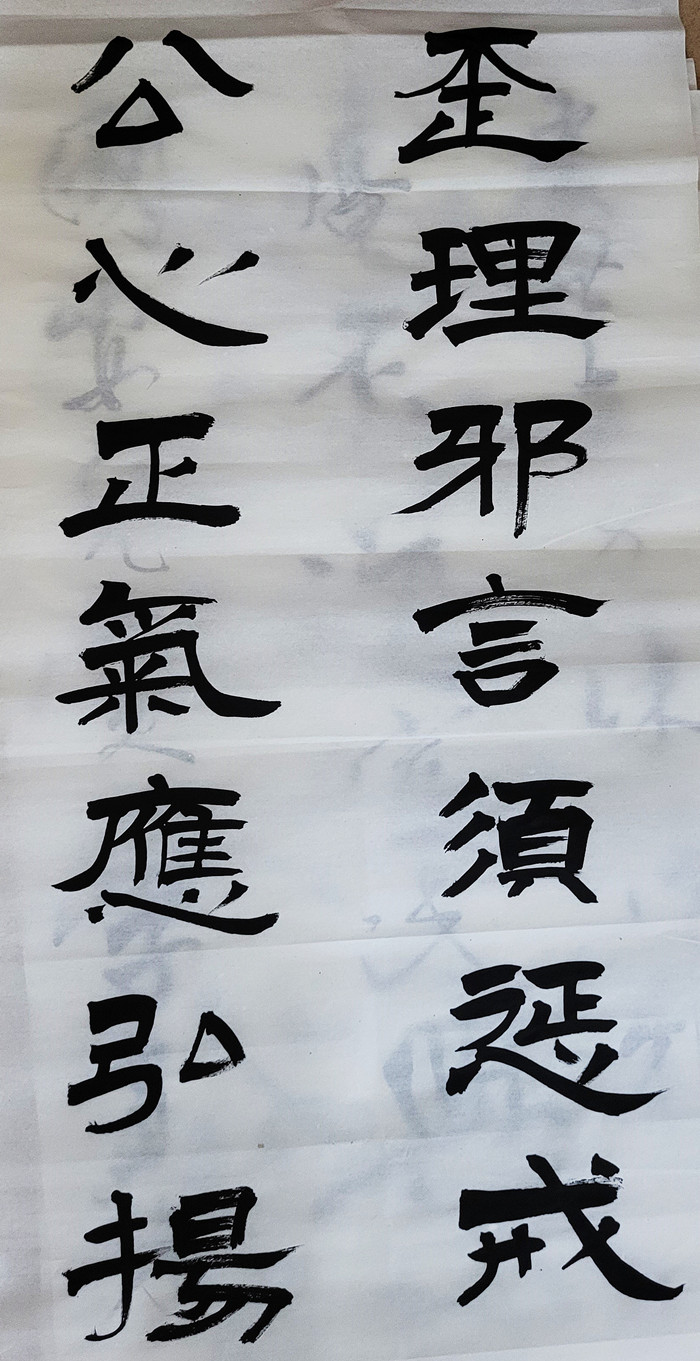 歪理邪言須惩戒
公心正氣應弘揚